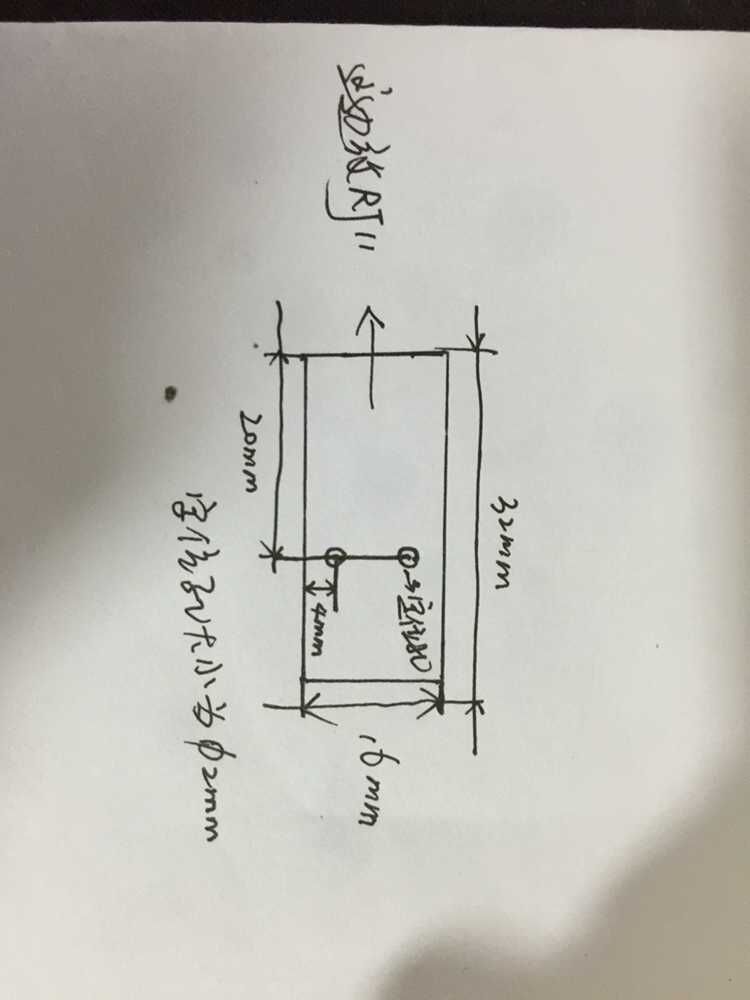 32mm
定位孔
这边放RJ11
16mm
4mm
20mm
定位孔大小为φ2mm